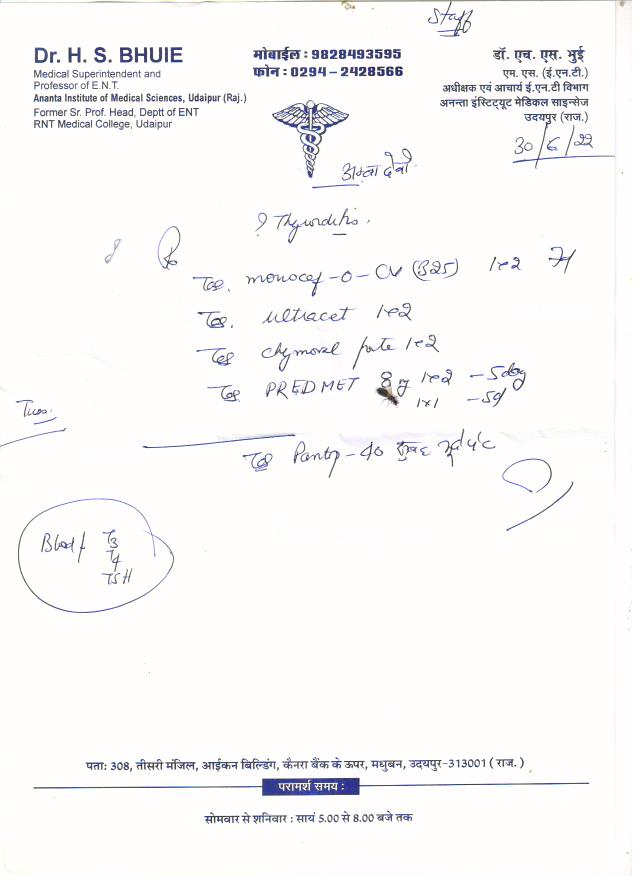 Staff
Dr. H. S. BHUIE
Medical Superintendent and
Professor of E.N.T.
Ananta Institute of Medical Sciences, Udaipur (Raj.)
Former Sr. Prof. Head, Deptt of ENT
RNT Medical College, Udaipur
मोबाईल : 9828493595
फोन : 0294 - 2428566
डॉ. एच. एस. भुई
एम. एस. (ई.एन.टी.)
अधीक्षक एवं आचार्य ई.एन.टी विभाग
अनन्ता इंस्टिट्यूट मेडिकल साइन्सेज
उदयपुर (राज.)
30/6/22
अम्बा देवी
? Thyroditis.
Tab. monocef-O-CV (325) 1x2
Tab. ultracet 1x2
Tab chymoral forte 1x2
Tab. PREDMET 8 mg 1x2 - 5 day
1x1 - 5d
Tues.
Tab Pantop-40 सुबह
Blood/ T3
T4
TSH
पता: 308, तीसरी मंजिल, आईकन बिल्डिंग, कैनरा बैंक के ऊपर, मधुबन, उदयपुर-313001 ( राज. )
परामर्श समय :
सोमवार से शनिवार : सायं 5.00 से 8.00 बजे तक